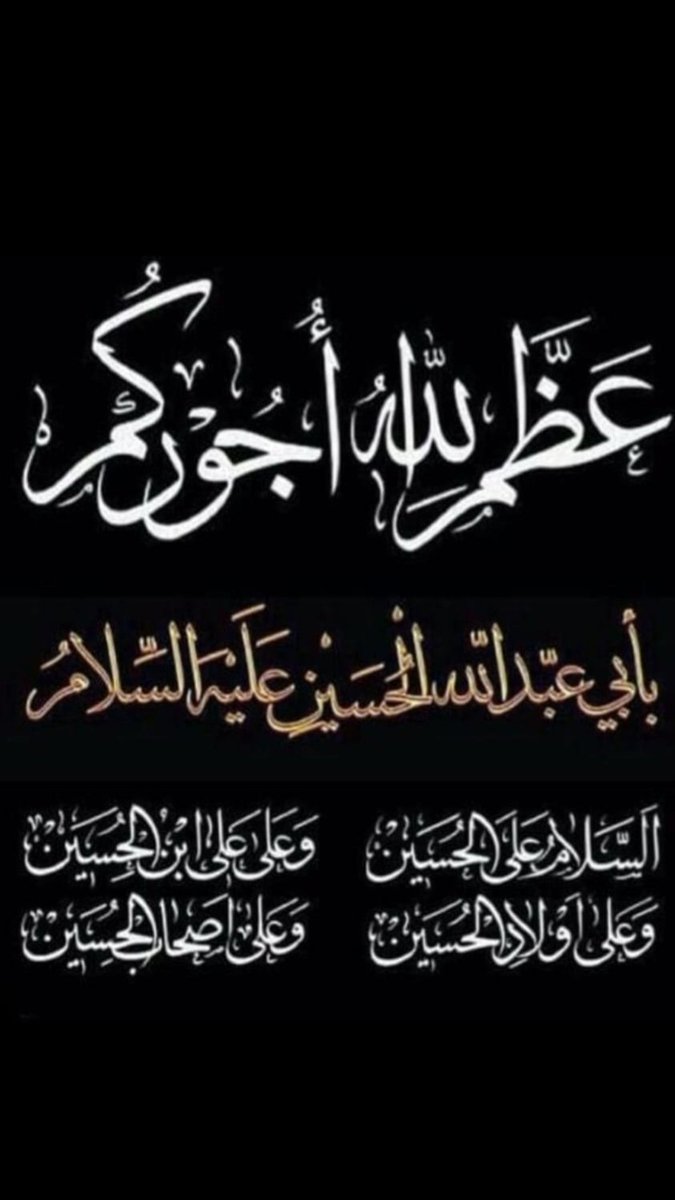 عَظَّمَ اللهُ أُجُورَكُمْ
بأبي عبد الله الحُسَيْنِ عَلَيْهِ السَّلامُ
اَلسَّلامُ عَلَى الحُسَيْن وَعَلى عَلى ابْنِ الحُسَيْن
وَعَلى اَوْلادِ الحُسَيْن وَعَلى اَصحاب الحُسَيْن